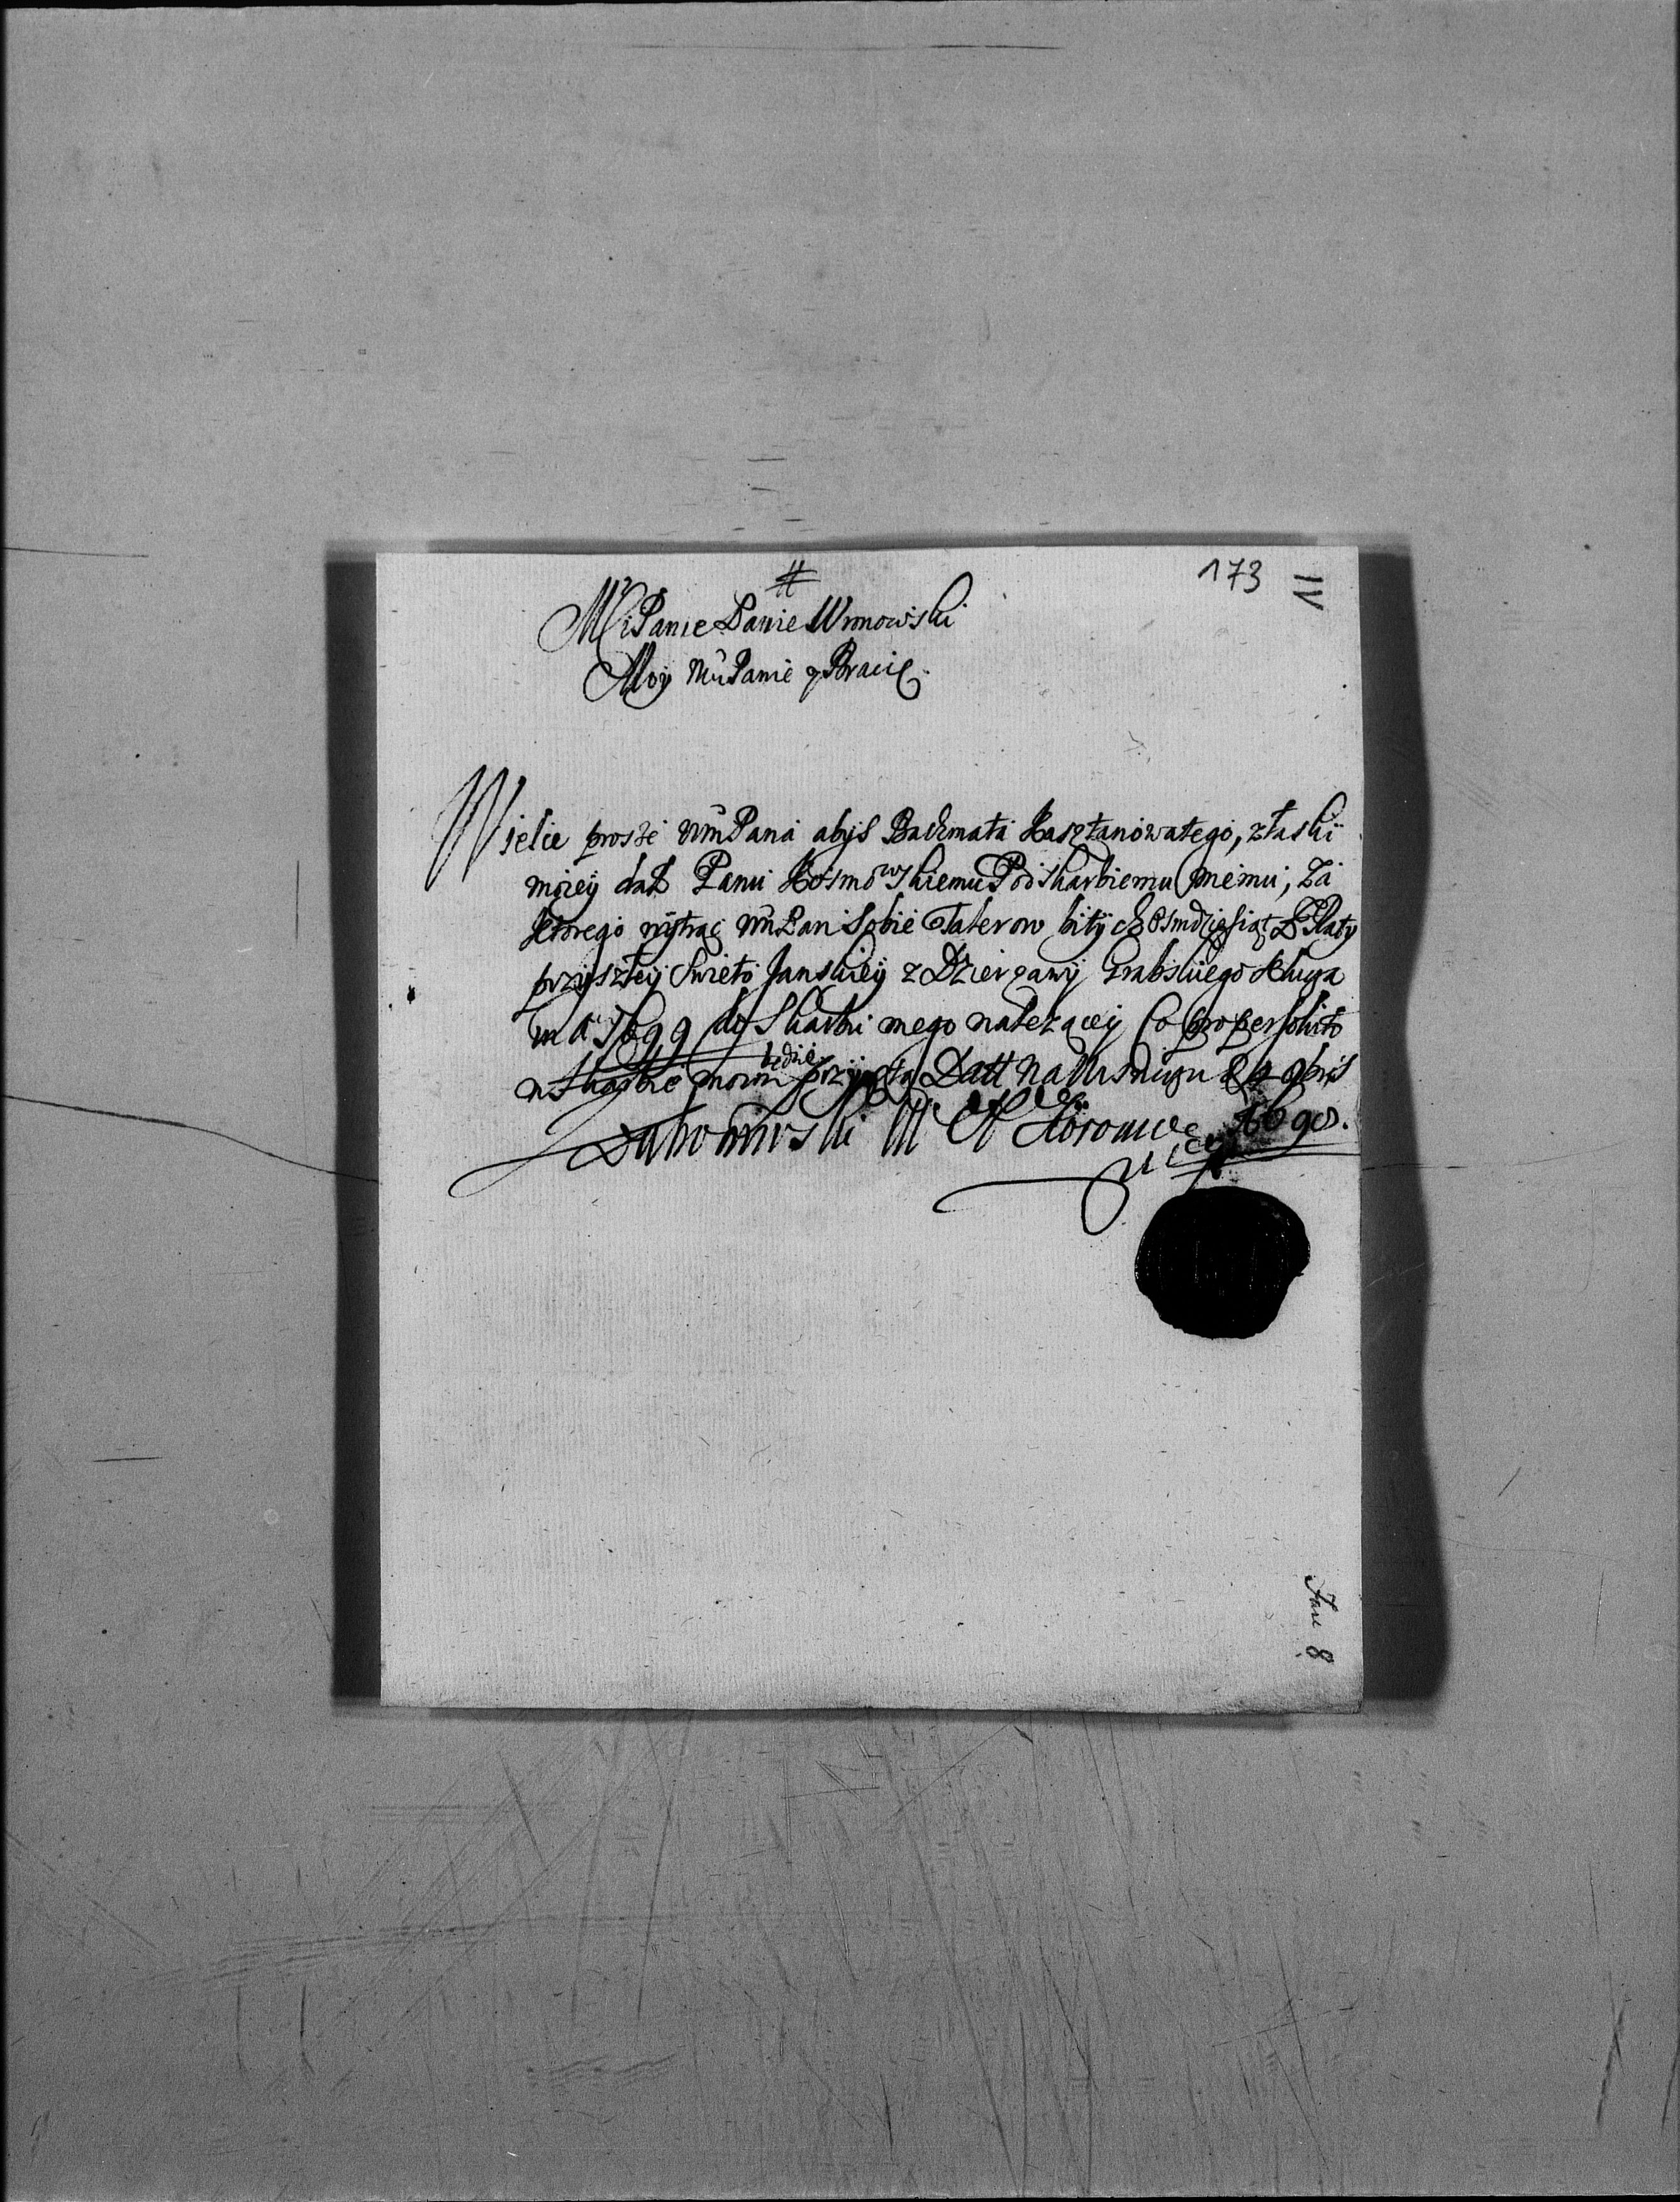 173
11
#
Mći Panie Panie Wronowski
Moy Mći Panie y Bracie
Wielce proszę WmPana abyś Bachmata Kasztanowatego, złaski
moiey dał Panu Kosmowskiemu Podskarbiemu memu, za
ktorego wytrąć WmPan Sobie Talerow bitych Osmdziesiąt z Raty
przyszłey Swięto Janskiey z Dzierzawy Grabskiego Kluga
in Ao 1699 do Skarbu mego należącey Co pro persoluto
w Skarbie moim będzie przyięto Datt na 9bris
Dąbrowski 1698.
8